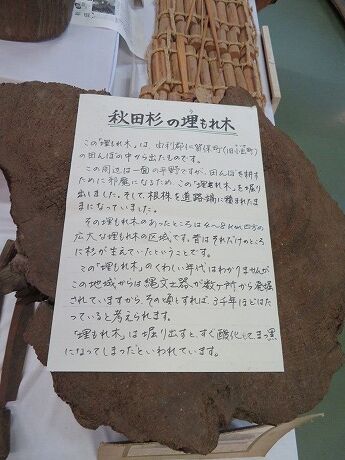 秋田杉の埋もれ木
この「埋もれ木」は 由利郡仁賀保町(旧小出町)
の田んぼの中から出たものです。
この周辺は一面の平野ですが、田んぼを耕す
ために邪魔になるため、この「埋もれ木」を堀り
出しました。そして、根株を道路端に積まれたま
まになっていました。
その埋もれ木のあったところは4~8km四方の
広大な埋もれ木の区域です。昔はそれだけのところ
に杉が生えていたということです。
この「埋もれ木」のくわしい年代はわかりませんが
この地域からは縄文土器が数ヶ所から発堀
されていますから、その頃とすれば3千年ほどはた
っていると考えられます。
「埋もれ木」は堀り出すと、すぐ酸化してまっ黒
になってしまったといわれています。